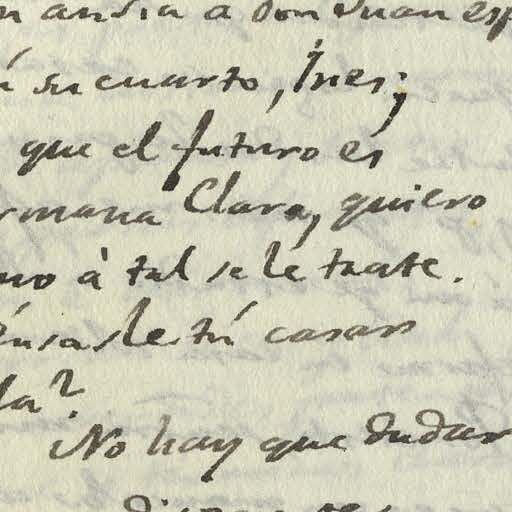 andia a Don Juan esp
su cuarto, Ines;
que el futuro es
rmana Clara, quiero
mo à tal se le trate.
ensasle tú casar
la?
No hay que dudar